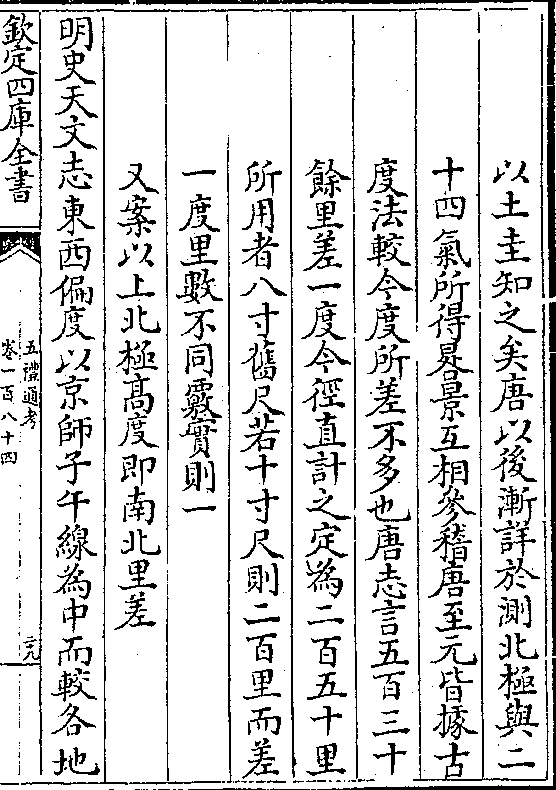 以土圭知之矣唐以後漸詳於測北極與二
十四氣所得晷景互相參稽唐至元皆據古
度法較今度所差不多也唐志言五百三十
餘里差一度今徑直計之定為二百五十里
所用者八寸舊尺若十寸尺則二百里而差
一度里數不同覈實則一
又案以上北極髙度即南北里差
明史天文志東西偏度以京師子午線為中而較各地
欽定四庫全書
五禮通考
卷一百八十四